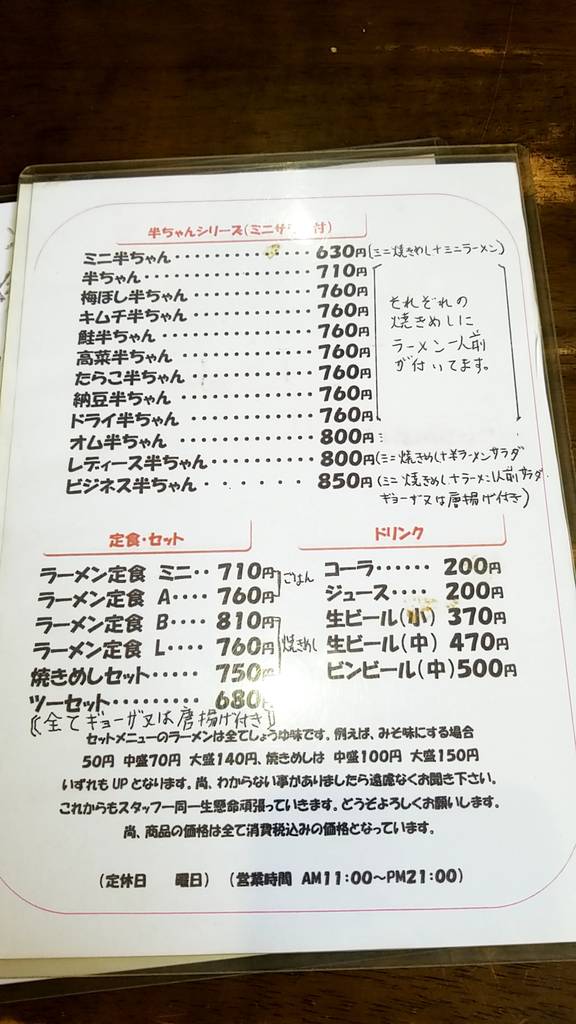 半ちゃんシリーズ(ミニサ 付)
ミニ半ちゃん・・・・・・・・・・・・・ 630円(ミニ焼きめし+ミニラーメン)
半ちゃん・・・・・・・・・・・・・・・ 710円
梅ぼし半ちゃん・・・・・・・・・・・・ 760円
キムチ半ちゃん・・・・・・・・・・・・ 760円
鮭半ちゃん・・・・・・・・・・・・・・ 760円
高菜半ちゃん・・・・・・・・・・・・・ 760円
たらこ半ちゃん・・・・・・・・・・・・ 760円
納豆半ちゃん・・・・・・・・・・・・・ 760円
ドライ半ちゃん・・・・・・・・・・・・ 760円
それぞれの
焼きめしに
ラーメン一人前
が付いてます。
オム半ちゃん・・・・・・・・・・・・・ 800円
レディース半ちゃん・・・・・・・・・・ 800円(ミニ焼きめし+半ラーメンサラダ
ビジネス半ちゃん・・・・・・ 850円(ミニ焼きめし+ラーメン1人前サラダ
ギョーザ又は唐揚げ付き)
定食・セット
ラーメン定食 ミニ・・ 710円
ラーメン定食 A・・・・ 760円
ごはん
ラーメン定食 B・・・・ 810円
ラーメン定食 L・・・・ 760円
焼きめしセット・・・・・ 750円
焼きめし
ツーセット・・・・・・・・・ 680
(全てギョーザ又は唐揚げ付き)
ドリンク
コーラ・・・・・・ 200円
ジュース・・・・ 200円
生ビール(小) 370円
生ビール(中) 470円
ビンビール(中)500円
セットメニューのラーメンは全てしょうゆ味です。例えば、みそ味にする場合
50円 中盛70円 大盛140円、焼きめしは 中盛100円 大盛150円
いずれもUPとなります。尚、わからない事がありましたら遠慮なくお聞き下さい。
これからもスタッフ一同一生懸命頑張っていきます。どうぞよろしくお願いします。
尚、商品の価格は全て消費税込みの価格となっています。
(定休日 曜日) (営業時間 AM11:00〜PM21:00)